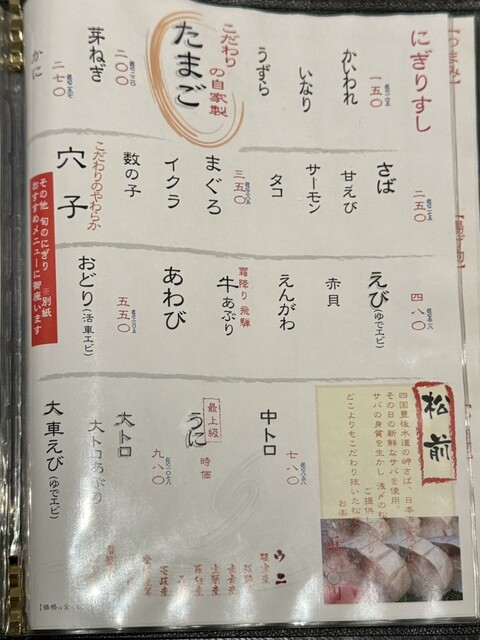 にぎりすし
一五〇
かいわれ
いなり
うずら
こだわり
の自家製
たまご
二〇〇
芽ねぎ
二七〇
かに
二五〇
さば
甘えび
サーモン
タコ
三五〇
まぐろ
イクラ
数の子
こだわりのやわらか
穴子
その他 旬のにぎり ※別紙
おすすめメニューに御座います
四八〇
えび(ゆでエビ)
赤貝
えんがわ
霜降り飛騨
牛あぶり
あわび
五五〇
おどり(活車エビ)
松前
四国豊後水道の岬さば、日本
その日の新鮮なサバを使用。
サバの身質を生かし、浅〆の松
どこよりもこだわり抜いた松
七八〇
中トロ
最上級
うに
時価
九八〇
大トロ
大トロあぶり
大車えび(ゆでエビ)
ウニ